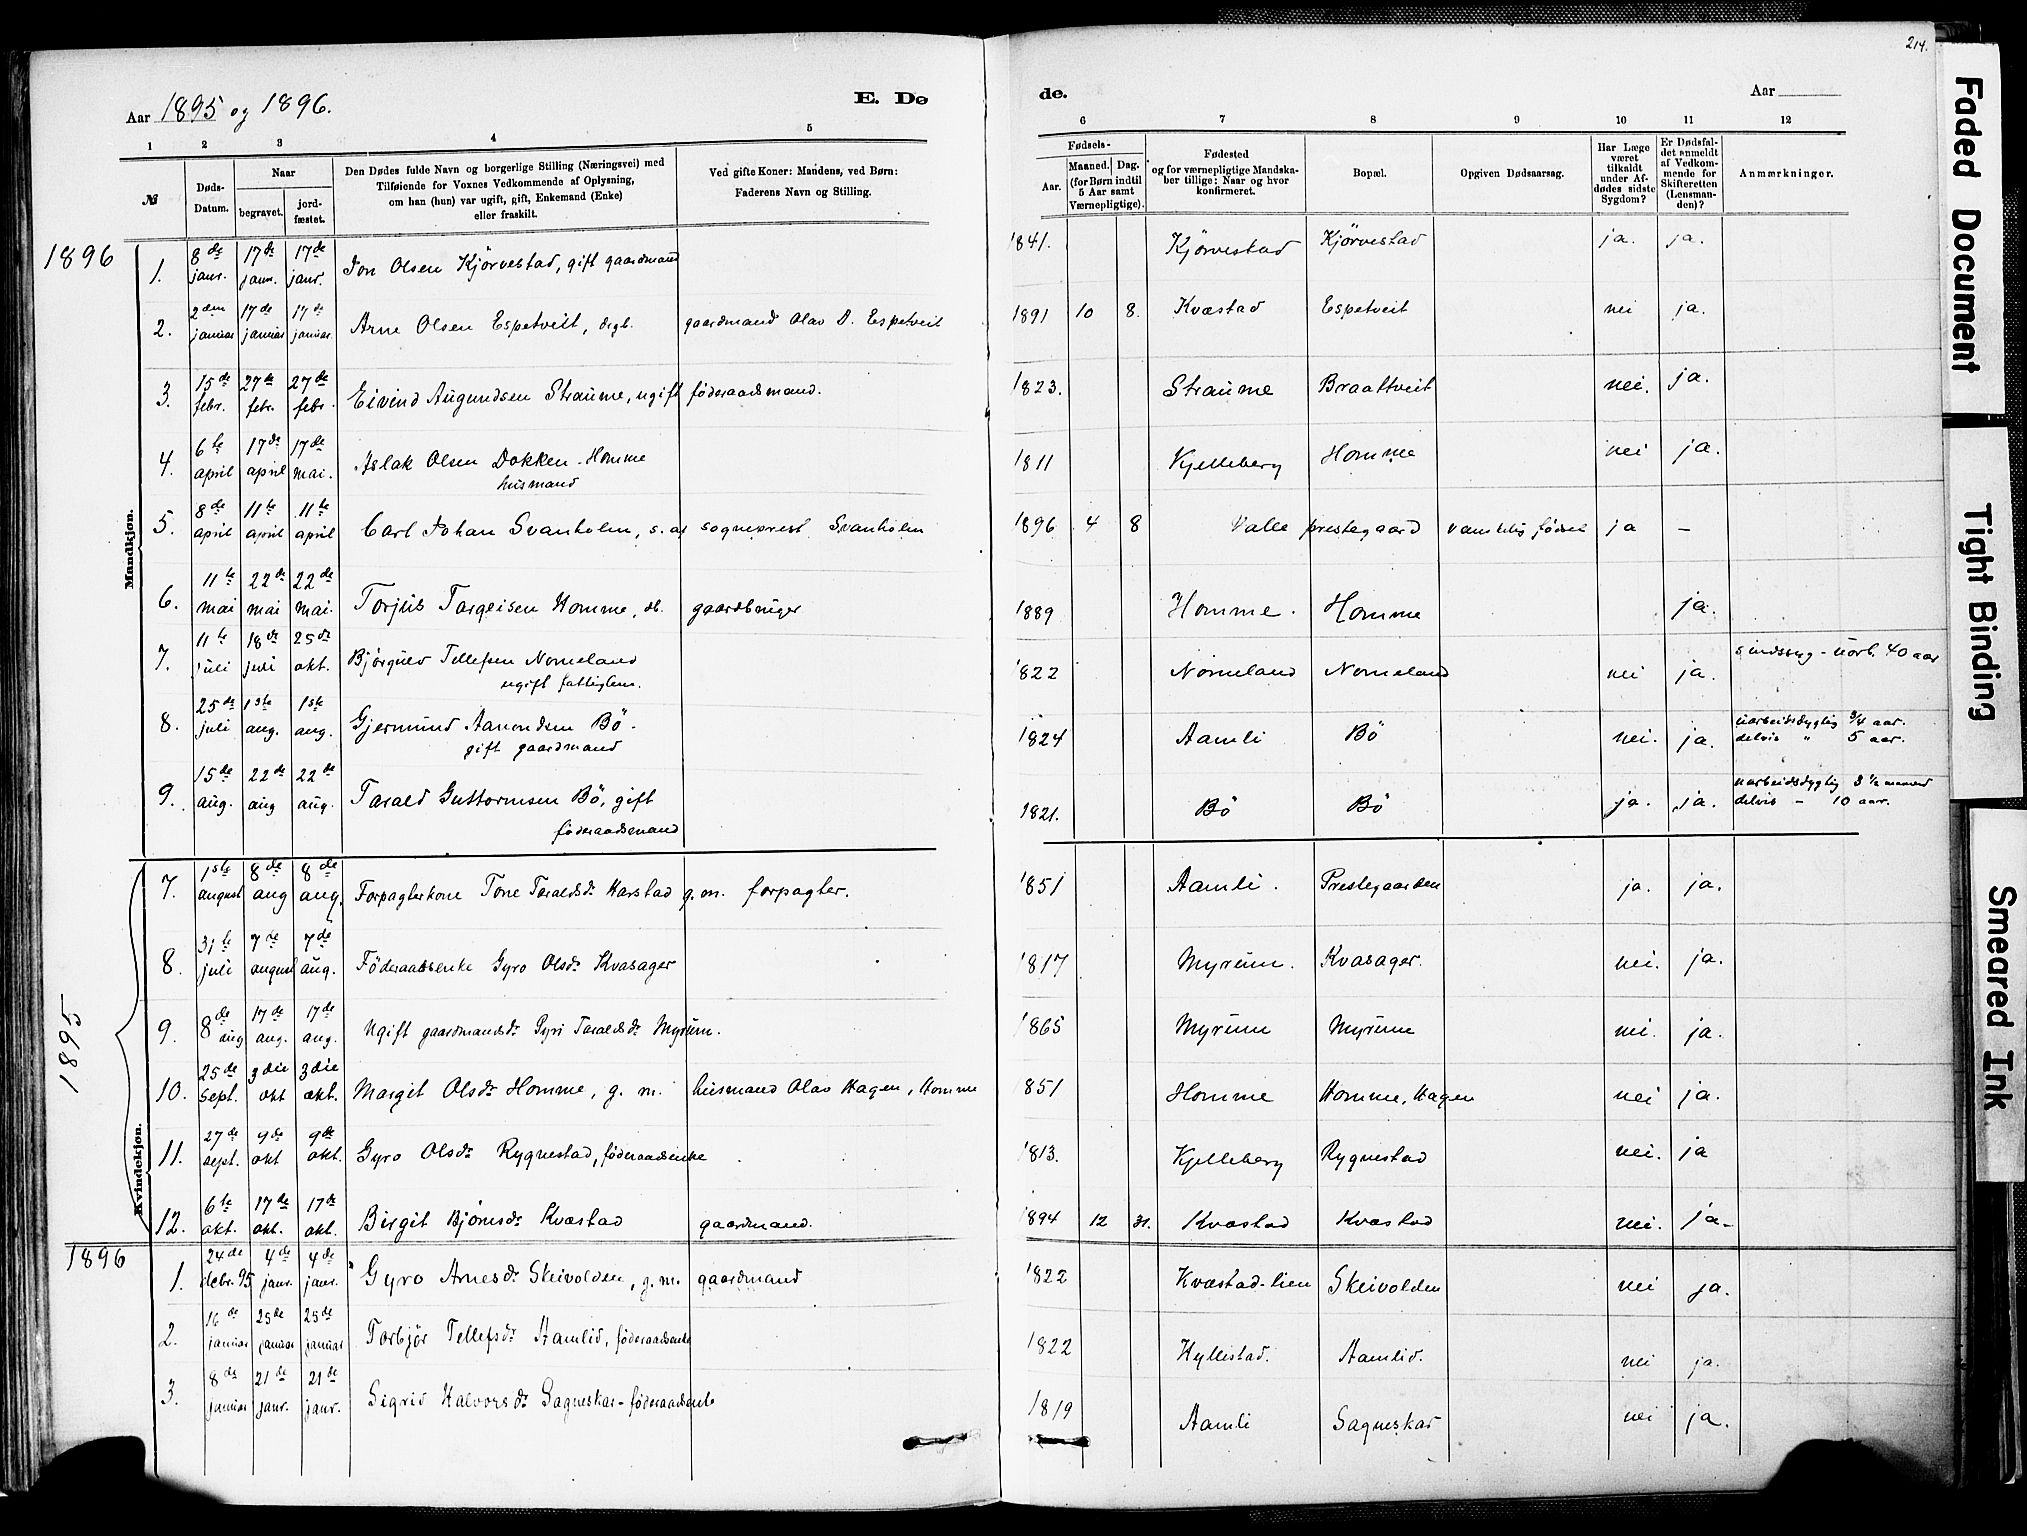 214.
Aar 1895 og 1896.
E. Dø
de.
Aar
1 2 3 4 5
6 7 8 9 10 11 12
№
Døds-Datum.
Naar
begravet.
jord-fæstet.
Den Dødes fulde Navn og borgerlige Stilling (Næringsvei) med
Tilføiende for Voxnes Vedkommende af Oplysning,
om han (hun) var ugift, gift, Enkemand (Enke)
eller fraskilt.
Ved gifte Koner: Mandens, ved Børn:
Faderens Navn og Stilling.
Fødsels-
Aar.
Maaned. Dag.
(for Børn indtil
5 Aar samt
Værnepligtige).
Fødested
og for værnepligtige Mandska-
ber tillige: Naar og hvor
konfirmeret.
Bopæl.
Opgiven Dødsaarsag.
Har Læge
været
tilkaldt
under Af-
dødes sidste
Sygdom?
Er Dødsfal-
det anmeldt
af Vedkom-
mende for
Skifteretten
(Lensman-
den)?
Anmærkninger.
Mandkjøn.
1896
1. 8de janr. 17de janr. 17de janr. Jon Olsen Kjörvestad, gift gaardmand 1841. Kjörvestad Kjörvestad ja. ja.
2. 2den januar 17de januar 17de januar. Arne Olsen Espetveit, gaardmand Olav O. Espetveit 1891 10 8. Kvæstad Espetveit nei ja.
3. 15de febr. 27de febr. 27de febr. Eivind Augundsen Straume, ugift föderaadsmand. 1823. Straume Braattveit nei. ja.
4. 6te april 17de april 17de mai. Aslak Olsen Dokken - Homme
husmand 1811 Kjelleberg Homme nei ja.
5. 8de april 11te april 11te april Carl Johan Svanholm, s. af sogneprest Svanholm 1896 4 8 Valle prestegaard vanskelig födsel ja -
6. 11te mai 22de mai 22de mai. Torjus Targeisen Homme, gaardbruger 1889 Homme. Homme ja.
7. 11te juli 18de juli 25de okt. Bjørgulv Tellefsen Nomeland
ugift fattiglem. 1822 Nomeland Nomeland nei ja. sindssyg - uarb. 40 aar
8. 25de juli 1ste aug. 1ste aug. Gjermund Aanondsen Bö.
gift gaardmand 1824 Aamli Bö nei. ja. uarbeidsdygtig 3/4 aar.
delvis " 5 aar.
9. 15de aug. 22de aug 22de aug. Tarald Guttormsen Bö, gift
föderaadsmand 1821. Bö Bö ja. ja. uarbeidsdygtig 3 1/2 maaned
delvis - 10 aar.
Kvindekjøn.
1895
7. 1ste august 8de aug 8de aug. Forpagterkone Tone Taraldsdr Harstad g. m. forpagter. 1851 Aamli. Prestegaarden ja. ja.
8. 31te juli 7de august 7de aug. Föderaadsenke Gyro Olsdr Kvasager 1817 Myrum. Kvasager. nei. ja.
9. 8de aug 17de aug. 17de aug. Ugift gaardmandsdr Gyri Taraldsdr Myrum. 1865 Myrum Myrum nei. ja.
10. 25de sept. 3die okt 3die okt. Margit Olsdr Homme, g. m. husmand Olav Hagen, Homme 1851 Homme Homme, Hagen nei ja.
11. 27de sept. 9de okt 9de okt. Gyro Olsdr Rygnestad, föderaadsenke 1813. Kjelleberg Rygnestad nei. ja
12. 6te okt. 17de okt. 17de okt. Birgit Bjørnsdr Kvæstad gaardmand. 1894 12 31. Kvæstad Kvæstad nei. ja-
1896
1. 24de debr. 95 4de janr. 4de janr. Gyro Arnesdr Skeivolden, g. m. gaardmand 1822 Kvæstad-lien Skeivolden nei ja.
2. 16de januar 25de januar 25de januar Torbjör Tellefsdr Aamlid, föderaadsenke 1822 Hyllestad. Aamlid. nei ja.
3. 8de januar 21de janr. 21de janr. Sigrid Halvorsdr Sagneskar - föderaadsenke 1819 Aamli Sagneskar nei ja.
Faded Document
Tight Binding
Smeared Ink